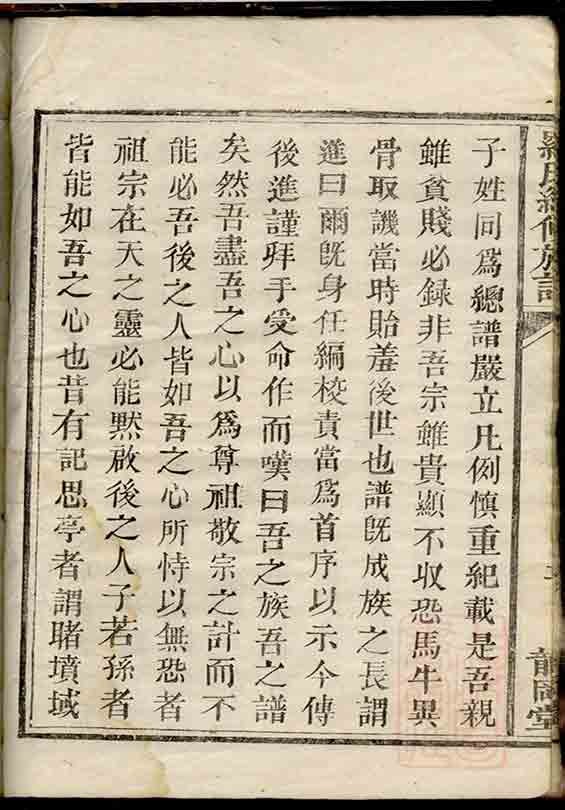 子姓同爲總譜嚴立凡例慎重紀載是吾親
雖貧賤必録非吾宗雖貴顯不収恐馬牛異
骨取譏當時貽羞後世也譜旣成族之長謂
進曰爾旣身任編校責當爲首序以示今傳
後進謹拜手受命作而嘆曰吾之族吾之譜
矣然吾盡吾之心以爲尊祖敬宗之計而不
能必吾後之人皆如吾之心所恃以無恐者
祖宗在天之靈必能黙啟後之人子若孫者
皆能如吾之心也昔有記思亭者謂睹墳域
氏 修族譜
堂